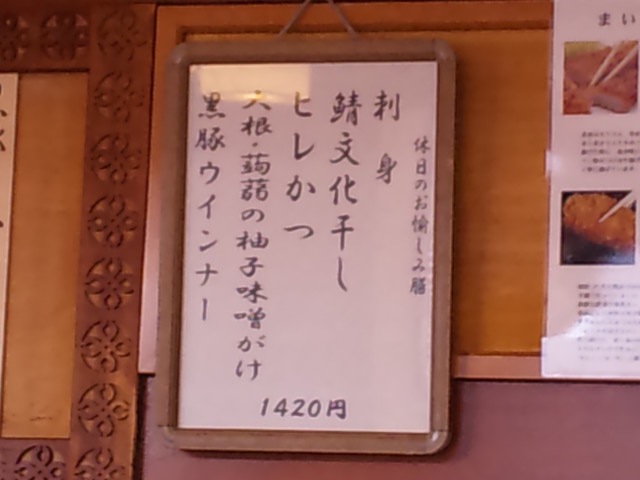 休日のお愉しみ膳
刺身
鯖文化干し
ヒレかつ
大根・蒟蒻の柚子味噌がけ
黒豚ウインナー
1420円
まい